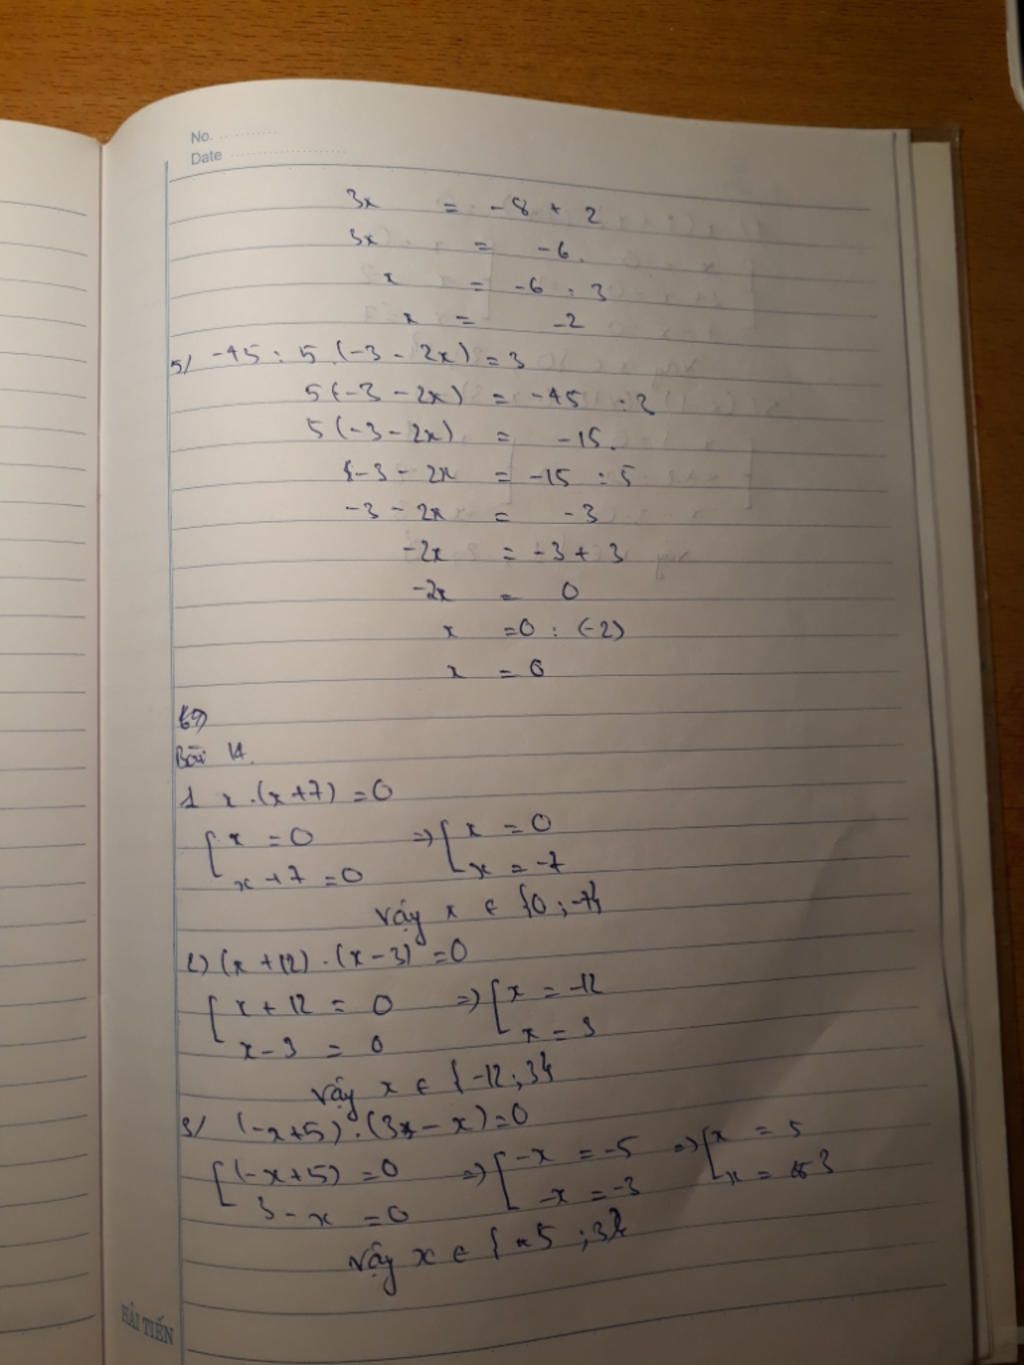 No.
Date
3x = -8 + 2
3x = -6.
x = -6 : 3
x = -2
5/ -45 : 5.(-3 - 2x) = 3
5(-3 - 2x) = -45 : 3
5(-3 - 2x) = -15.
-3 - 2x = -15 : 5
-3 - 2x = -3
-2x = -3 + 3
-2x = 0
x = 0 : (-2)
x = 0
Bài 14.
1 x.(x+7) = 0
[x = 0 => [x = 0
x + 7 = 0 x = -7
Vậy x ∈ {0 ; -7}
2) (x + 12).(x - 3) = 0
[x + 12 = 0 => [x = -12
x - 3 = 0 x = 3
Vậy x ∈ {-12 ; 3}
3/ (-x+5).(3 - x) = 0
[(-x+5) = 0 => [-x = -5 => [x = 5
3 - x = 0 -x = -3 x = 3
Vậy x ∈ {5 ; 3}
HẢI TIẾN